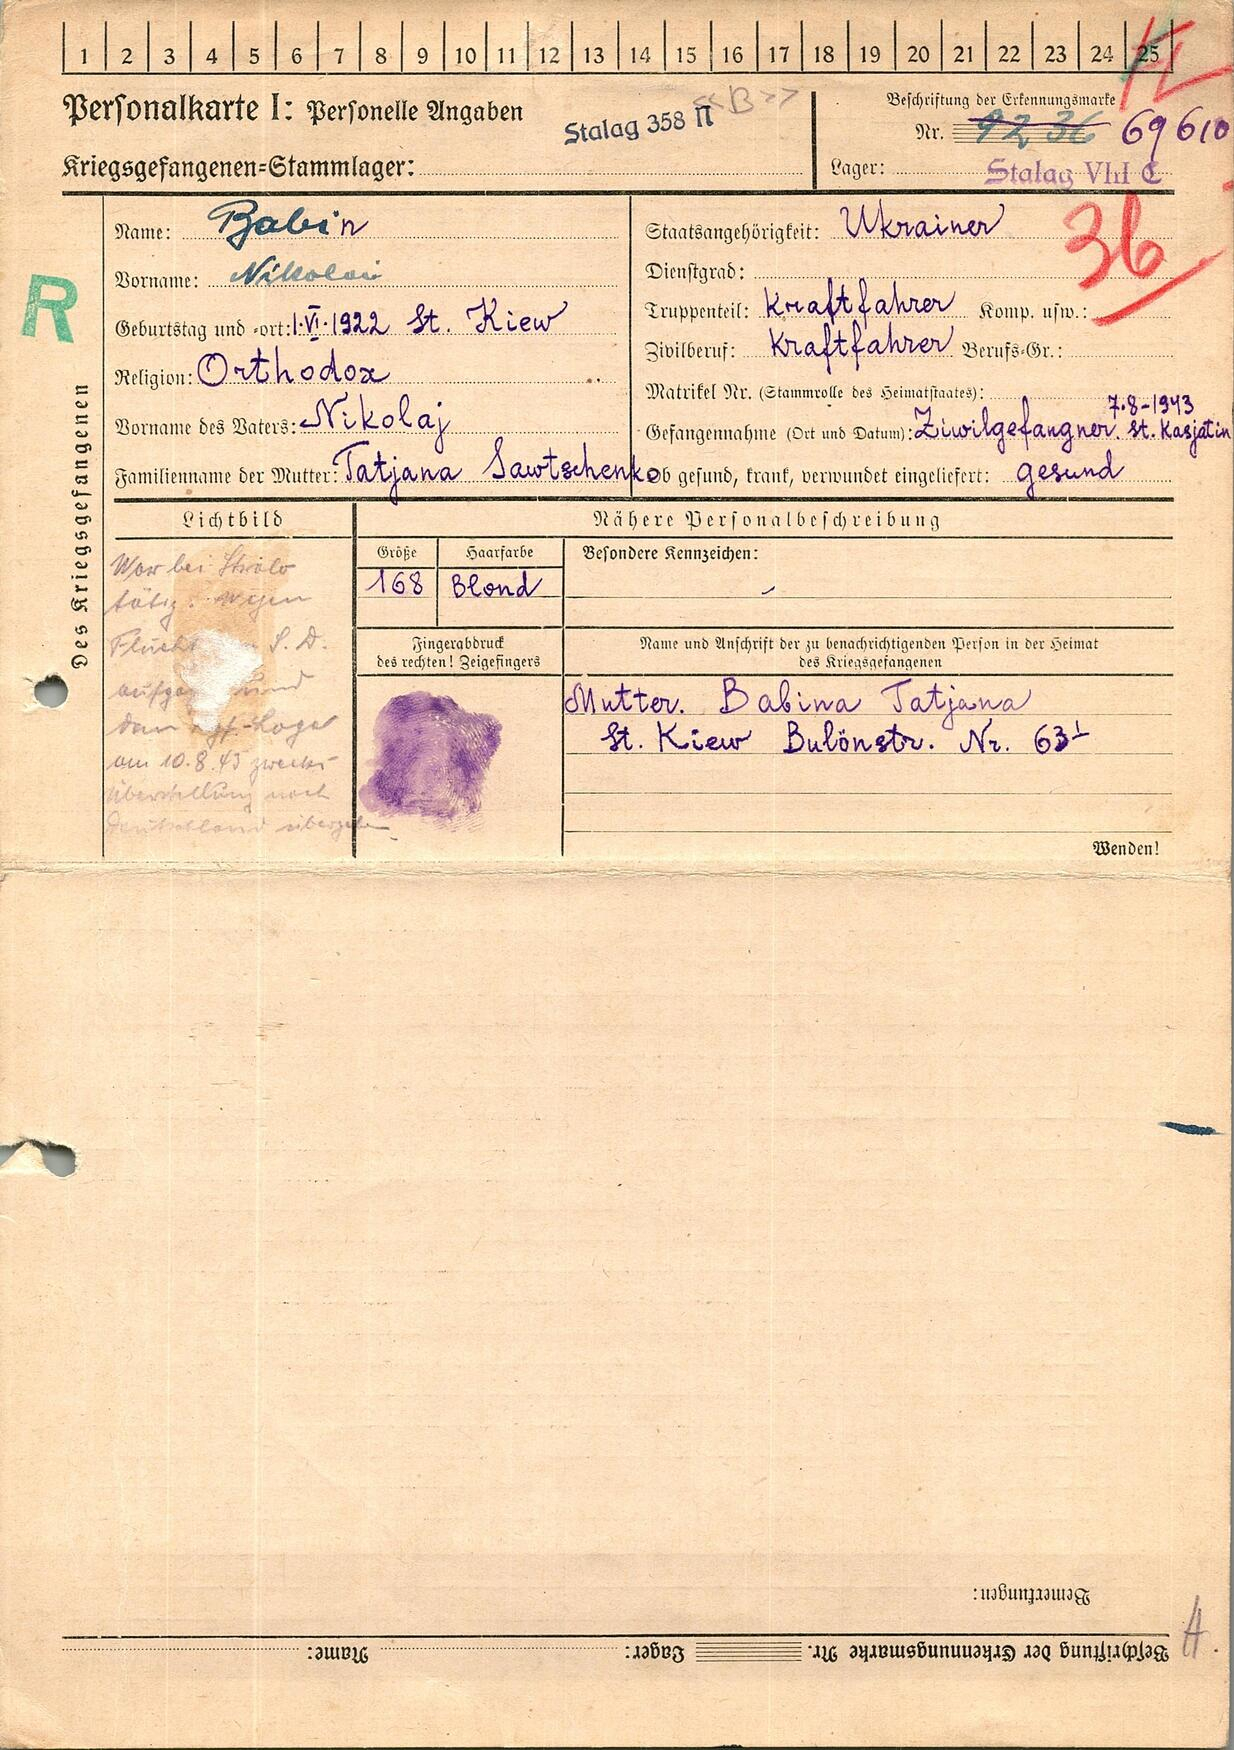 1 2 3 4 5 6 7 8 9 10 11 12 13 14 15 16 17 18 19 20 21 22 23 24 25
Personalkarte I: Personelle Angaben
Stalag 358 II
«B»
Kriegsgefangenen-Stammlager:
Beschriftung der Erkennungsmarke
Nr. 9236 69610
Lager: Stalag VIII C
R
Des Kriegsgefangenen
Name: Babin
Vorname: Nikolai
Geburtstag und -ort: 1.VI.1922 St. Kiew
Religion: Orthodox
Vorname des Vaters: Nikolaj
Familienname der Mutter: Tatjana Sawtschenko
Staatsangehörigkeit: Ukrainer
36
Dienstgrad:
Truppenteil: Kraftfahrer Komp. usw.:
Zivilberuf: Kraftfahrer Berufs-Gr.:
Matrikel Nr. (Stammrolle des Heimatstaates):
7.8-1943
Gefangennahme (Ort und Datum): Ziwilgefangner. St. Kasjatin
Ob gesund, krank, verwundet eingeliefert: gesund
Lichtbild
War bei
tätig. Wegen
Flucht S.D.
und
dem -Lager
am 10.8.43 zwecks
Überstellung nach
Deutschland übergeben
Nähere Personalbeschreibung
Größe
168
Haarfarbe
Blond
Besondere Kennzeichen:
-
Fingerabdruck
des rechten! Zeigefingers
Name und Anschrift der zu benachrichtigenden Person in der Heimat
des Kriegsgefangenen
Mutter. Babina Tatjana
St. Kiew Bulönstr. Nr. 63
Wenden!
Bemerkungen:
Beschriftung der Erkennungsmarke Nr. Lager: Name:
A.